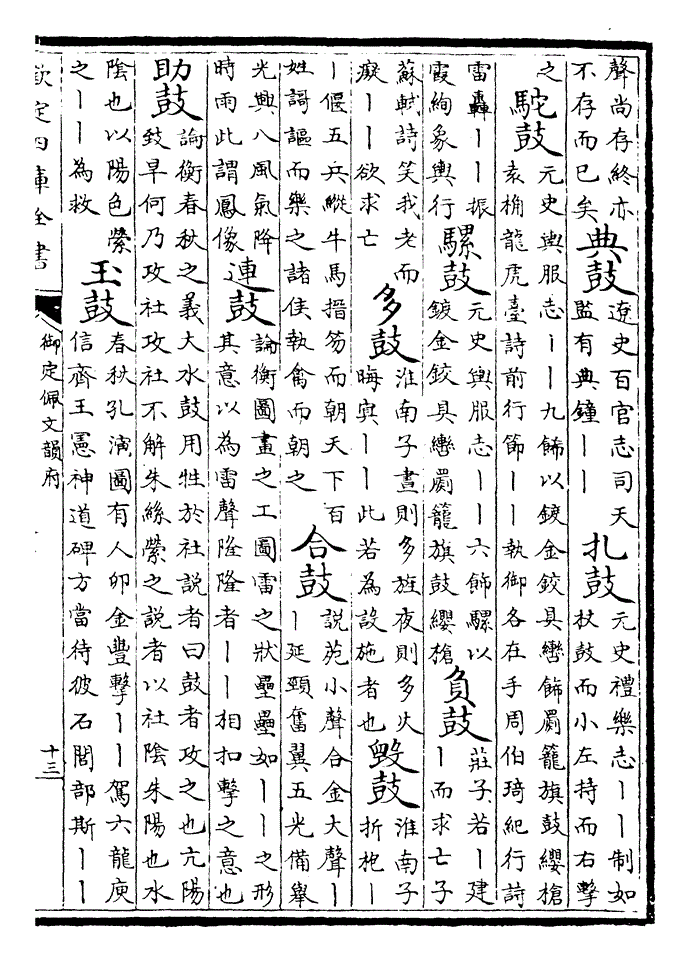 聲尚存終亦不存而已矣 典鼓 遼史百官志司天監有典鐘丨丨 扎鼓 元史禮樂志丨丨制如杖鼓而小左持而右擊
之 駝鼓 元史輿服志丨丨九飾以鍍金鉸具轡飾罽籠旗鼓纓槍袁桷龍虎臺詩前行節丨丨執御各在手周伯琦紀行詩
雷轟丨丨振霞絢象輿行 騾鼓 元史輿服志丨丨六飾騾以鍍金鉸具轡罽籠旗鼓纓槍 負鼓 莊子若丨建丨而求亡子
蘇軾詩笑我老而癡丨丨欲求亡 多鼓 淮南子晝則多旌夜則多火晦冥丨丨此若為設施者也 毀鼓 淮南子折枹丨
丨偃五兵縱牛馬搢笏而朝天下百姓謌謳而樂之諸侯執禽而朝之 合鼓 說苑小聲合金大聲丨丨延頸奮翼五光備舉
光興八風氣降時雨此謂鳳像 連鼓 論衡圖畫之工圖雷之狀壘壘如丨丨之形其意以為雷聲隆隆者丨丨相扣擊之意也
助鼓 論衡春秋之義大水鼓用牲於社說者曰鼓者攻之也亢陽致旱何乃攻社攻社不解朱絲縈之說者以社陰朱陽也水
陰也以陽色縈之丨丨為救 玉鼓 春秋孔演圖有人卯金豐擊丨丨駕六龍庾信齊王憲神道碑方當待彼石閭部斯丨丨
欽定四庫全書 御定佩文韻府 十三